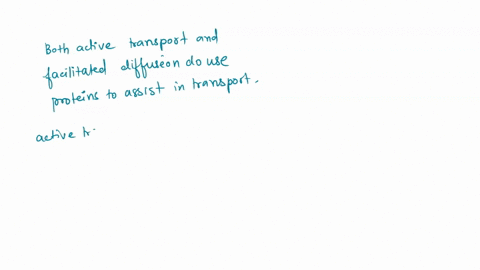 Both active transport and
facilitated diffusion do use
proteins to assist in transport.
active tr.